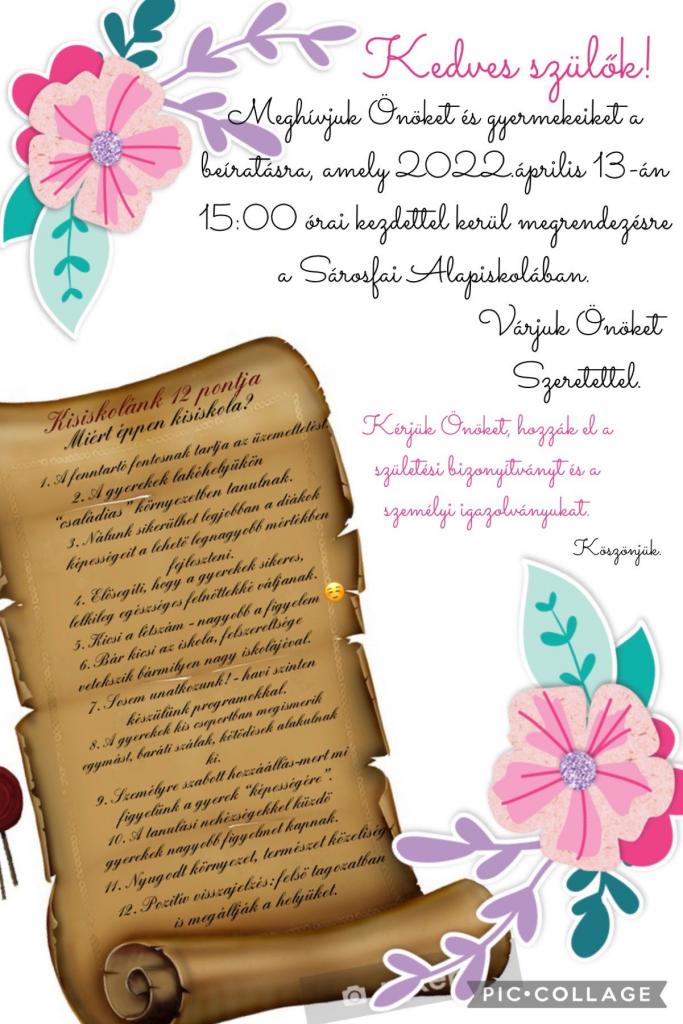 Kedves szülők!
Meghívjuk Önöket és gyermekeiket a
beíratásra, amely 2022.április 13-án
15:00 órai kezdettel kerül megrendezésre
a Sárosfai Alapiskolában.
Várjuk Önöket
Szeretettel.
Kérjük Önöket, hozzák el a
születési bizonyítványt és a
személyi igazolványukat.
Köszönjük.
Kisiskolánk 12 pontja
Miért éppen kisiskola?
1. A fenntartó fontosnak tartja az üzemeltetést.
2. A gyerekek lakóhelyükön
"családias" környezetben tanulnak.
3. Nálunk sikerülhet legjobban a diákok
képességeit a lehető legnagyobb mértékben
fejleszteni.
4. Elősegíti, hogy a gyerekek sikeres,
lelkileg egészséges felnőttekké váljanak.
5. Kicsi a létszám - nagyobb a figyelem ☺
6. Bár kicsi az iskola, felszereltsége
vetekszik bármilyen nagy iskolájéval.
7. Sosem unatkozunk! - havi szinten
készülünk programokkal.
8. A gyerekek kis csoportban megismerik
egymást, baráti szálak, kötődések alakulnak
ki.
9. Személyre szabott hozzáállás-mert mi
figyelünk a gyerek "képességére".
10. A tanulási nehézségekkel küzdő
gyerekek nagyobb figyelmet kapnak.
11. Nyugodt környezet, természet közelsége
12. Pozitív visszajelzés: felső tagozatban
is megállják a helyüket.
PIC•COLLAGE